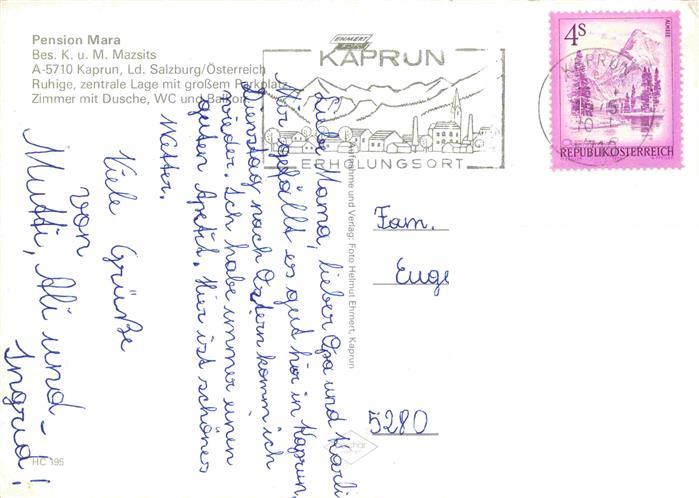 Pension Mara
Bes. K. u. M. Mazsits
A-5710 Kaprun, Ld. Salzburg/Österreich
Ruhige, zentrale Lage mit großem Parkplatz
Zimmer mit Dusche, WC und Balkon
EHMERT
KAPRUN
ERHOLUNGSORT
KAPRUN
4S
ALMSEE
REPUBLIK ÖSTERREICH
Liebe Mama, lieber Opa und Karli
Mir gefällt es gut hir in Kaprun,
Dienstag nach Ostern komm ich
wieder. Ich habe immer einen
guten Apetit. Hier ist schönes
Wetter.
Viele Grüße
von
Mutti, Ali und
Ingrid!
Aufnahme und Verlag: Foto Helmut Ehmert, Kaprun
Fam.
Euge
5280
HC 195